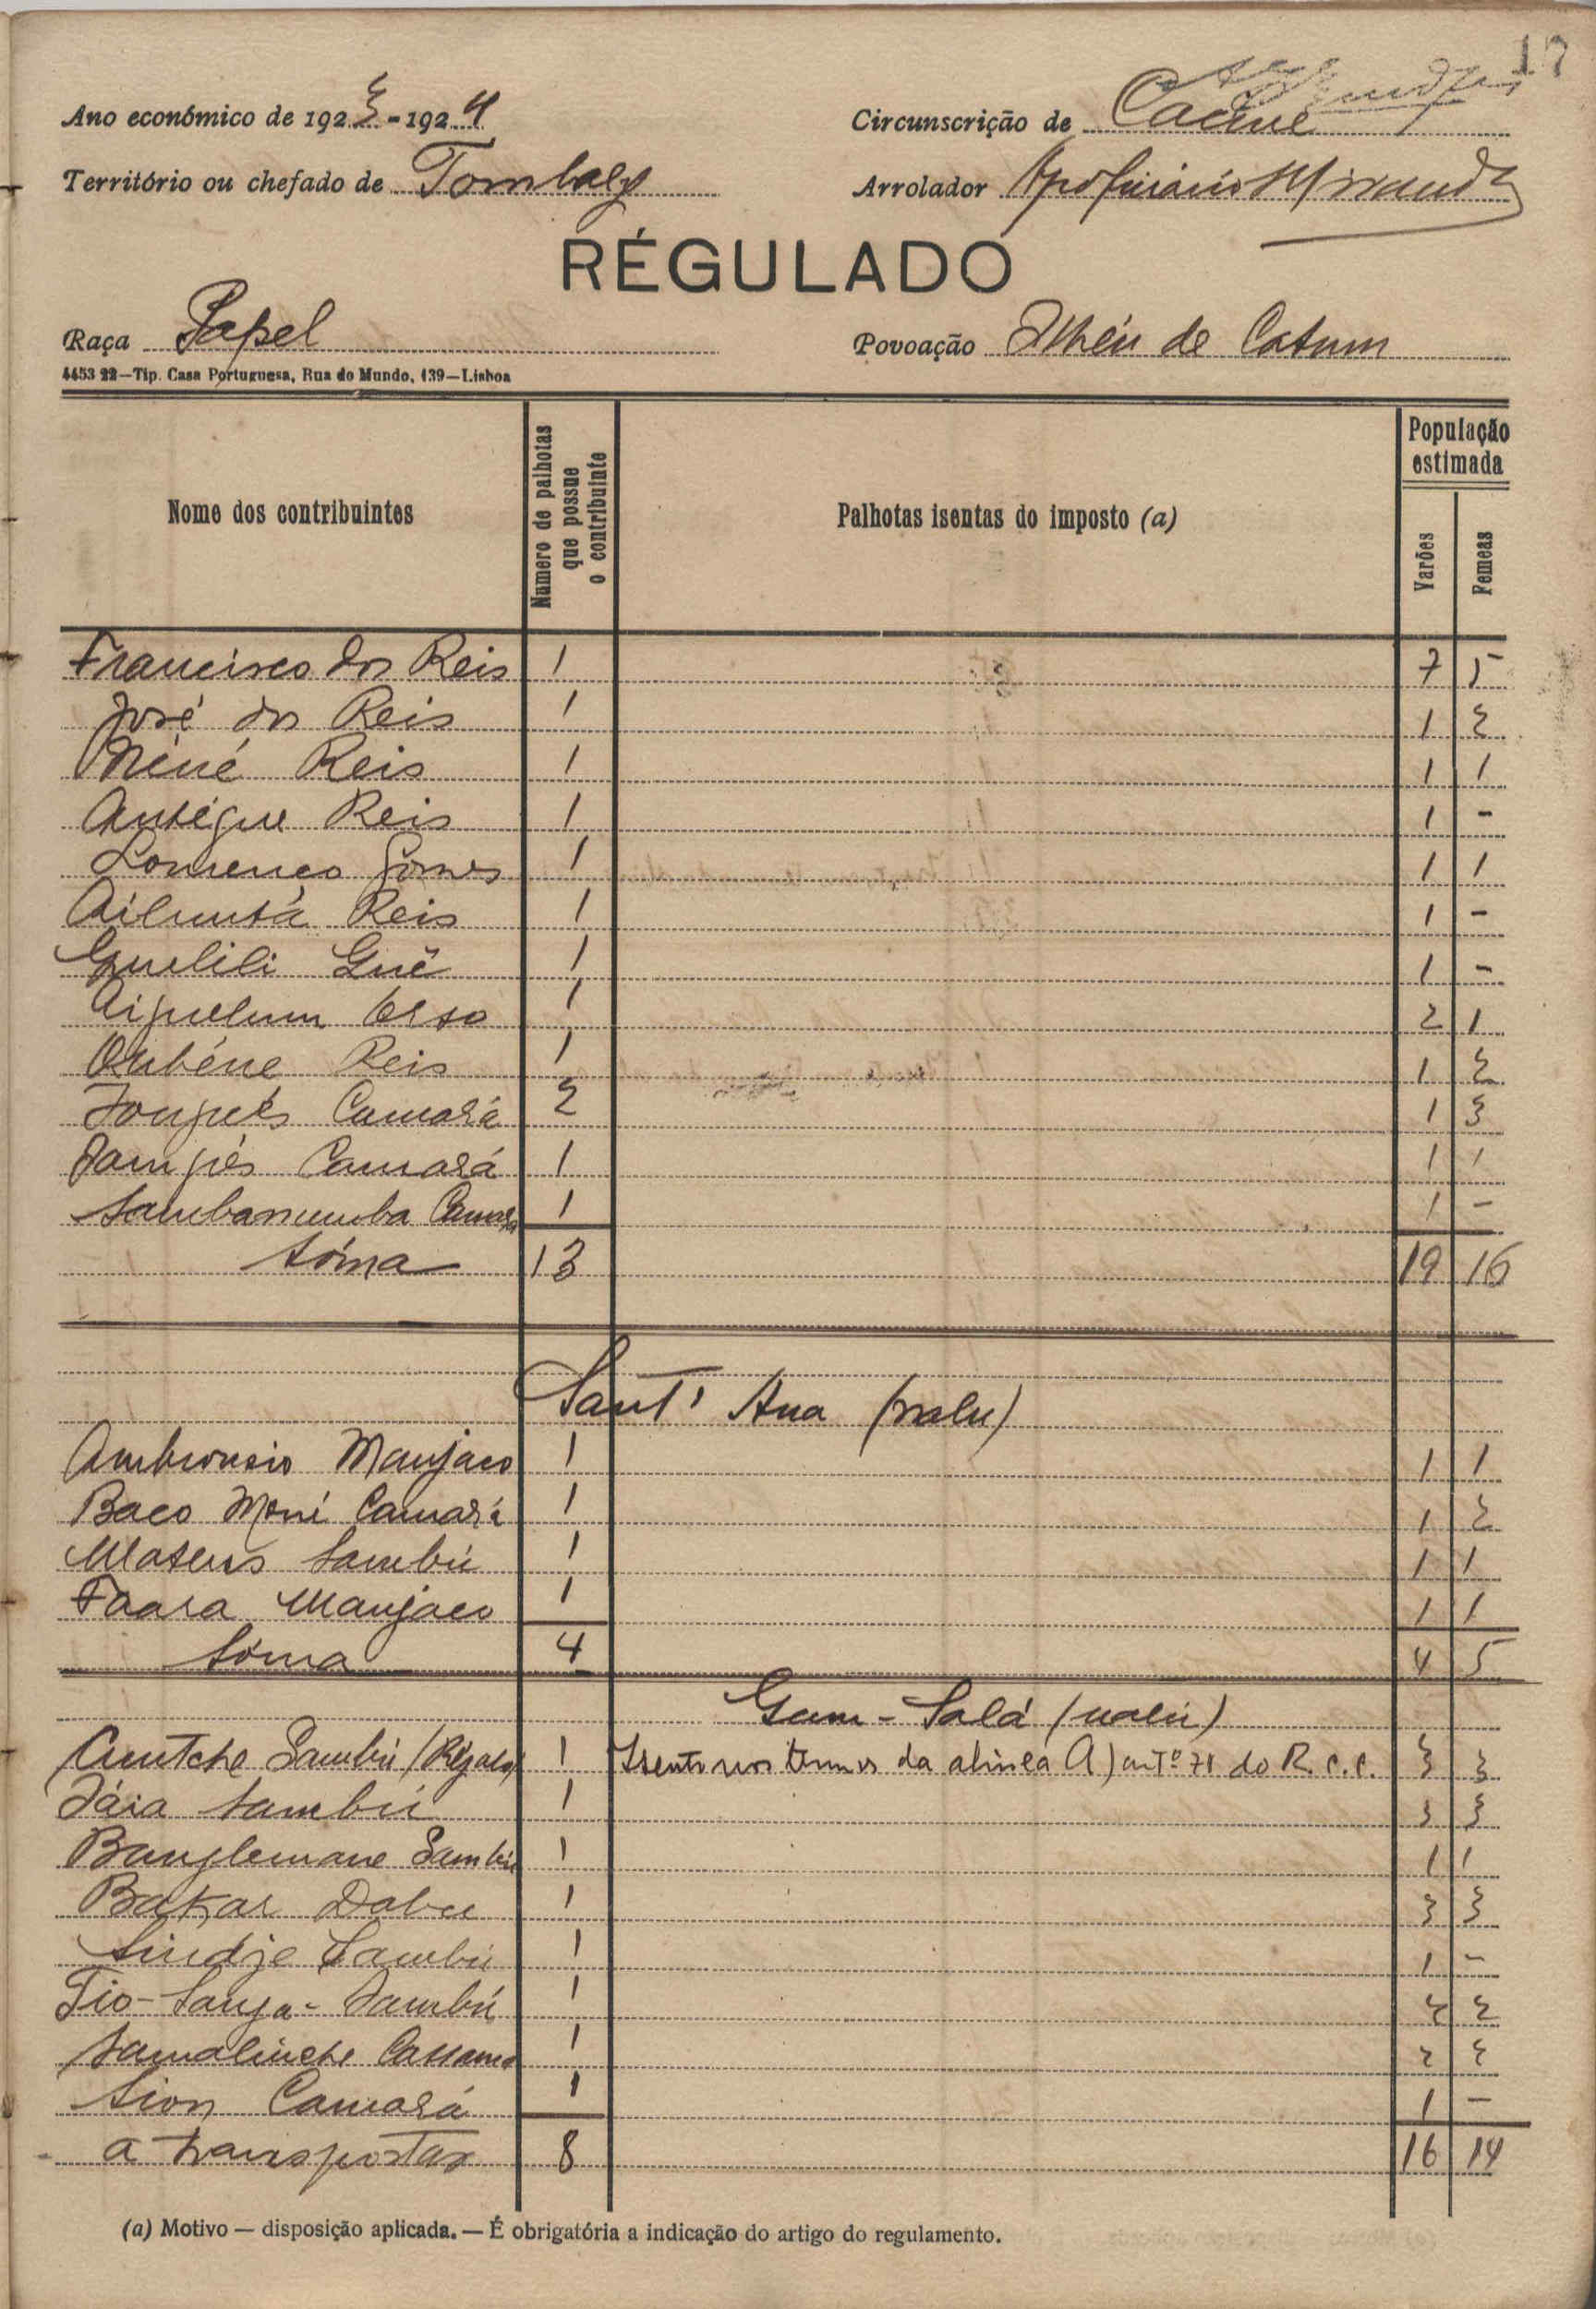 17
Ano económico de 1923-1924
Circunscrição de Cacine
Território ou chefado de Tombaly
Arrolador
RÉGULADO
Raça Papel
Povoação Ilhéu de Catum
4453 22—Tip. Casa Portuguesa, Rua do Mundo, 139—Lisboa
Nome dos contribuintes
Numero de palhotas que possue o contribuinte
Palhotas isentas do imposto (a)
População estimada
Varões
Femeas
Francisco dos Reis 1 7 5
José dos Reis 1 1 2
Néné Reis 1 1 1
Antégue Reis 1 1 -
Lourenço Gomes 1 1 1
Reis 1 1 -
Guelili Gué 1 1 -
1 2 1
Reis 1 1 2
Camará 2 1 3
Camará 1 1 1
Sambanumba Camará 1 1 -
Sóma 13 19 16
Sant' Ana (nalu)
Ambronsio Manjaco 1 1 1
Baco Moni Camará 1 1 2
Mateus Sambú 1 1 1
Faara Manjaco 1 1 1
Sóma 4 4 5
Gam-Salá (nalú)
Cuntche Sambú (Régulo) 1 Isento nos termos da alinea A) artº 71 do R. c. c. 3 3
Sambú 1 3 3
Sambú 1 1 1
Bakar Dabu 1 3 3
Sindje Sambú 1 1 -
Tio-Sanja-Sambú 1 2 2
Samalinche Cassamá 1 2 2
Sion Camará 1 1 -
a transportar 8 16 14
(a) Motivo — disposição aplicada. — É obrigatória a indicação do artigo do regulamento.